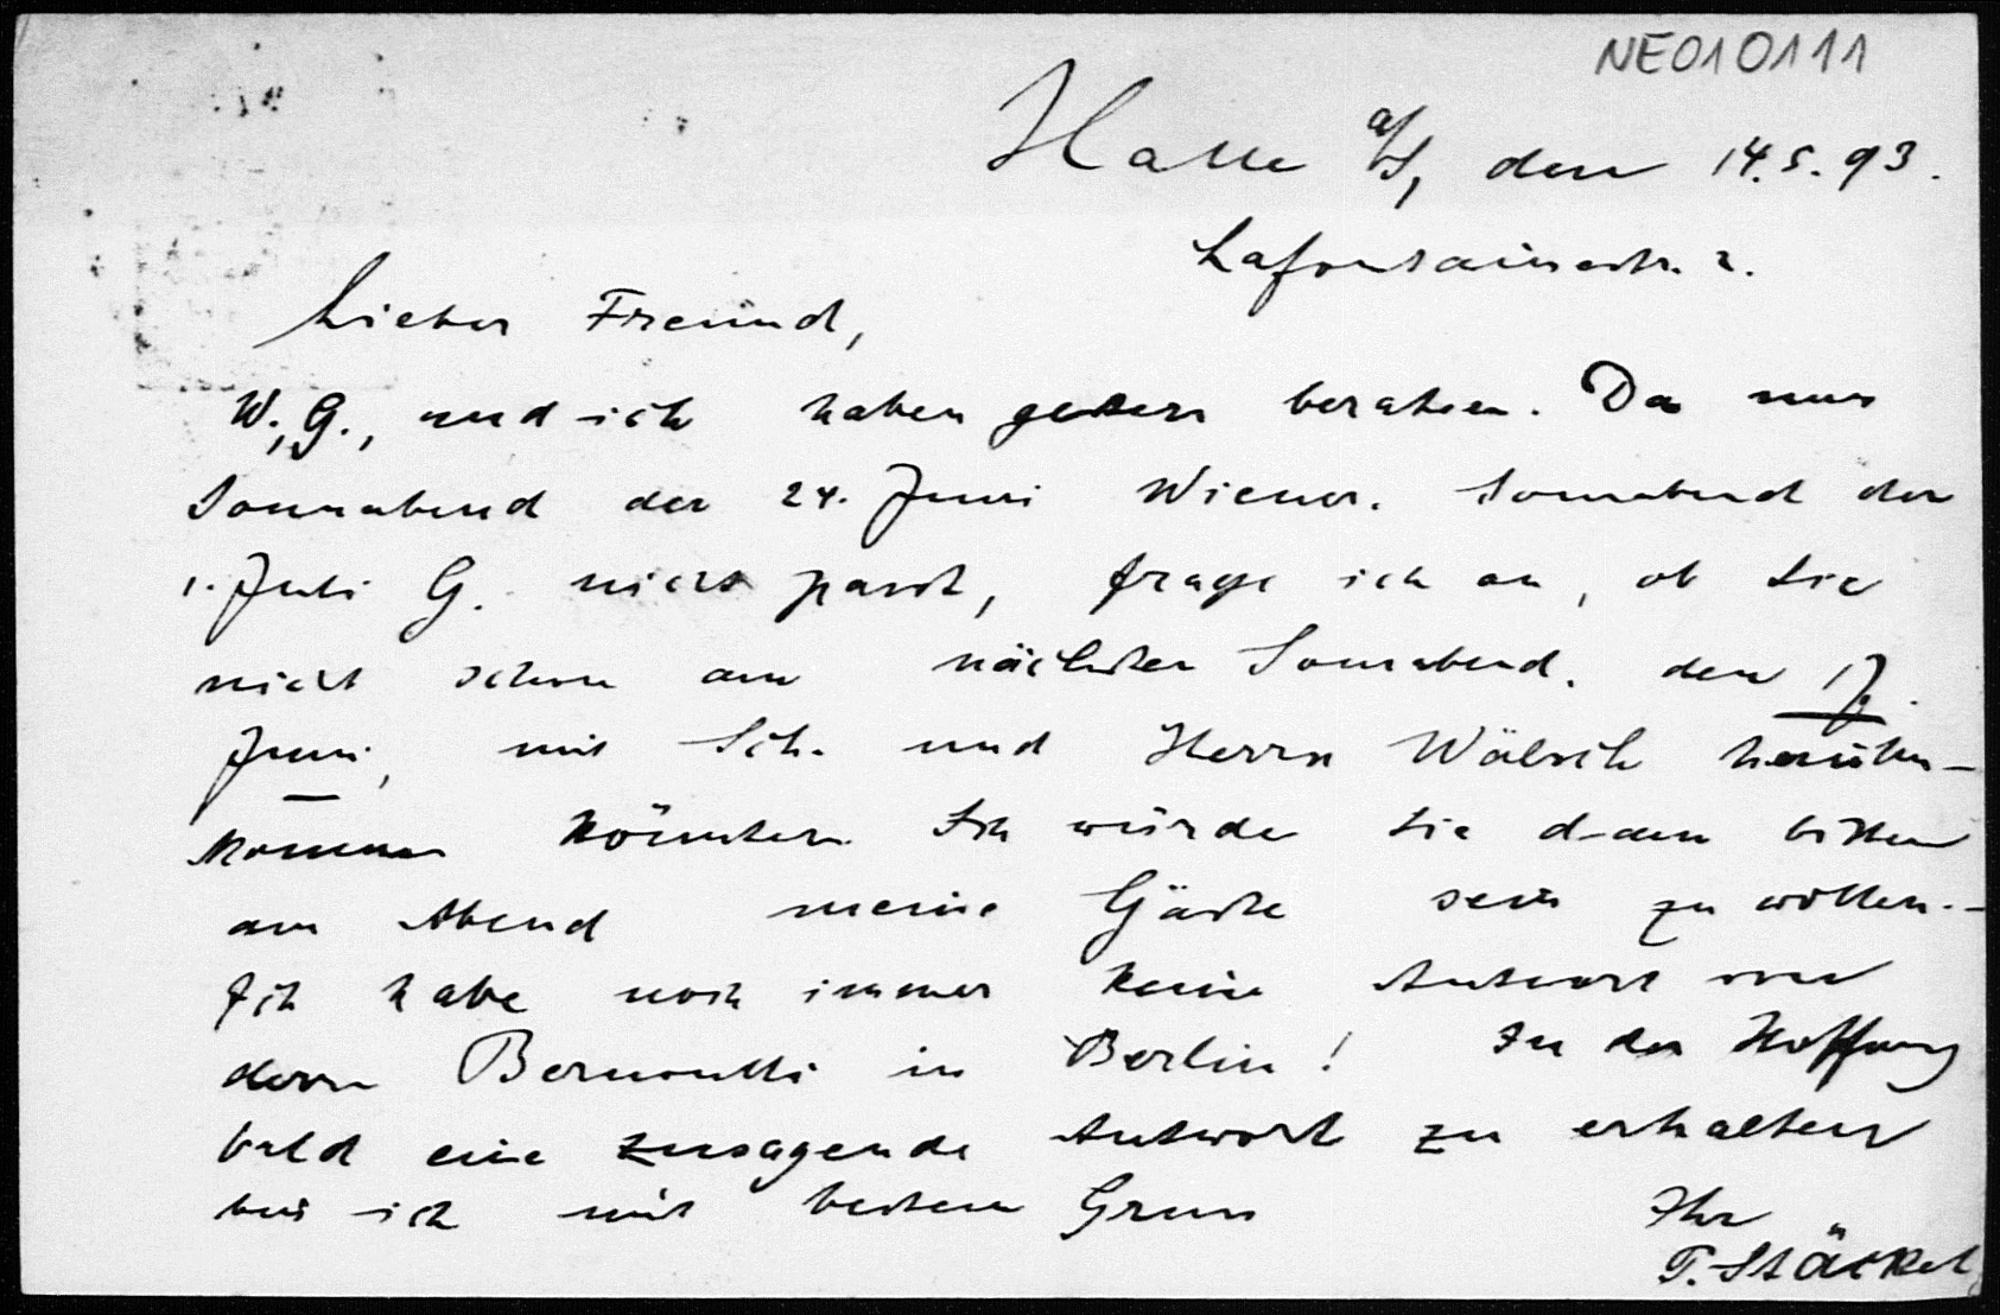 NE010111
Halle a/S, den 14.5.93.
Lafontainestr. 2.
Lieber Freund,
W., G., und ich haben gestern beraten. Da nun
Sonnabend der 24. Juni Wiener. Sonnabend der
1. Juli G. nicht passt, frage ich an, ob Sie
nicht schon am nächsten Sonnabend. den 17.
Juni, mit Sch. und Herrn Wälsch herüber-
kommen könnten. Ich würde Sie dann bitten
am Abend meine Gäste sein zu wollen.-
Ich habe noch immer keine Antwort von
dem Bernoulli in Berlin! In der Hoffnung
bald eine zusagende Antwort zu erhalten
bin ich mit bestem Gruss Ihr
P. Stäckel